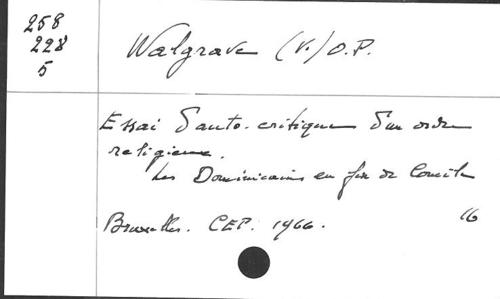 258
228
5
Walgrave (V.) O.P.
Essai d'auto-critique d'un ordre
religieux.
Les Dominicains en fin de Concile
Bruxelles. CEP. 1966. 16